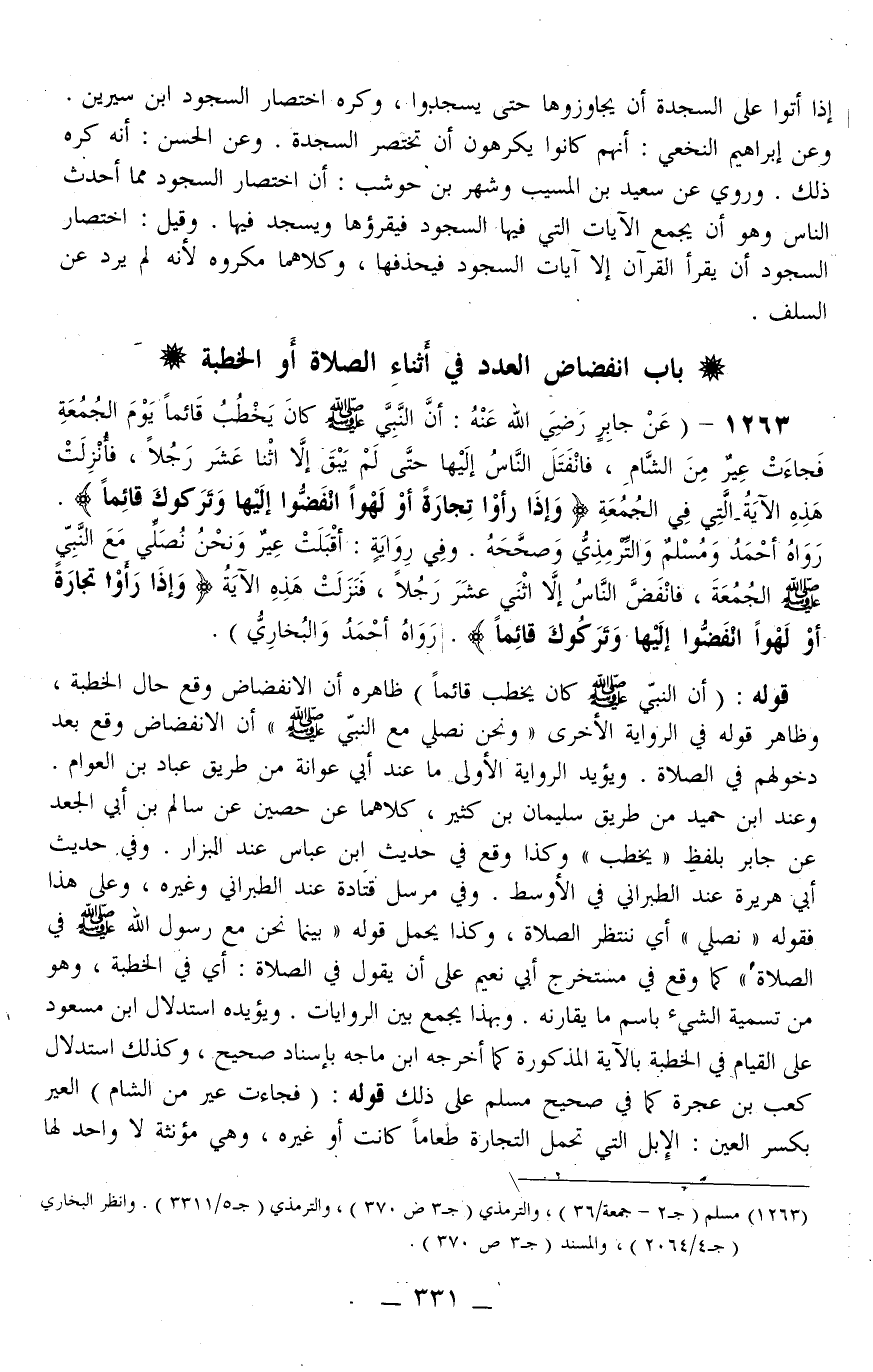 إذا أتوا على السجدة أن يجاوزوها حتى يسجدوا ، وكره اختصار السجود ابن سيرين .
وعن إبراهيم النخعي : أنهم كانوا يكرهون أن تختصر السجدة . وعن الحسن : أنه كره
ذلك . وروي عن سعيد بن المسيب وشهر بن حوشب : أن اختصار السجود مما أحدث
الناس وهو أن يجمع الآيات التي فيها السجود فيقرؤها ويسجد فيها . وقيل : اختصار
السجود أن يقرأ القرآن إلا آيات السجود فيحذفها ، وكلاهما مكروه لأنه لم يرد عن
السلف .
باب انفضاض العدد في أثناءِ الصلاة أو الخطبة
١٢٦٣ – ( عَنْ جابِرٍ رَضِيَ الله عَنْهُ : أنَّ النَّبِيَّ ﷺ كانَ يَخْطُبُ قَائماً يَوْمَ الجُمُعَةِ
فَجاءَتْ عِيرٌ مِنَ الشَّامِ ، فانْفَتَلَ النَّاسُ إلَيها حتَّى لَمْ يَبْقَ إلَّا اثْنا عَشَر رَجُلاً ، فأُنْزِلَتْ
هَذِهِ الآيَةُ الَّتِي فِي الجُمُعَةِ ﴿ وَإذَا رأوْا تِجارَةً أوْ لَهْواً انْفَضُّوا إلَيْها وَتَرَكوكَ قائماً ﴾ .
رَوَاهُ أحْمَدُ وَمُسْلمٌ وَالتِّرْمِذِيُّ وَصحَّحَهُ . وفِي رِوَايَةٍ : أقْبَلَتْ عِيرٌ وَنحْنُ نُصَلِّي مَعَ النَّبِيّ
ﷺ الجُمُعَةَ ، فانْفَضَّ النَّاسُ إلَّا اثْنَي عشَرَ رَجُلاً ، فَنَزَلَتْ هَذِهِ الآيَةُ ﴿ وَإذا رَأَوْا تجارَةً
أوْ لَهْواً انْفَضُّوا إلَيْها وَتَرَكُوكَ قائِماً ﴾ . رَوَاهُ أحْمَدُ وَالبُخارِيُّ ) .
قوله : ( أن النبيّ ﷺ كان يخطب قائماً ) ظاهره أن الانفضاض وقع حال الخطبة ،
وظاهر قوله في الرواية الأخرى « ونحن نصلي مع النبيّ ﷺ » أن الانفضاض وقع بعد
دخولهم في الصلاة . ويؤيد الرواية الأولى ما عند أبي عوانة من طريق عباد بن العوام .
وعند ابن حميد من طريق سليمان بن كثير ، كلاهما عن حصين عن سالم بن أبي الجعد
عن جابر بلفظ « يخطب » وكذا وقع في حديث ابن عباس عند البزار . وفي حديث
أبي هريرة عند الطبراني في الأوسط . وفي مرسل قتادة عند الطبراني وغيره ، وعلى هذا
فقوله « نصلي » أي ننتظر الصلاة ، وكذا يحمل قوله « بينما نحن مع رسول الله ﷺ في
الصلاة » كما وقع في مستخرج أبي نعيم على أن يقول في الصلاة : أي في الخطبة ، وهو
من تسمية الشيء باسم ما يقارنه . وبهذا يجمع بين الروايات . ويؤيده استدلال ابن مسعود
على القيام في الخطبة بالآية المذكورة كما أخرجه ابن ماجه بإسناد صحيح ، وكذلك استدلال
كعب بن عجرة كما في صحيح مسلم على ذلك قوله : ( فجاءت عير من الشام ) العير
بكسر العين : الإبل التي تحمل التجارة طعاماً كانت أو غيره ، وهي مؤنثة لا واحد لها
(١٢٦٣) مسلم ( جـ٢ – جمعة/٣٦ ) ، والترمذي ( جـ٣ ض ٣٧٠ ) ، والترمذي ( جـ٥/٣٣١١ ) . وانظر البخاري
( جـ٤/٢٠٦٤ ) ، والمسند ( جـ٣ ص ٣٧٠ ) .
ــ ٣٣١ ــ